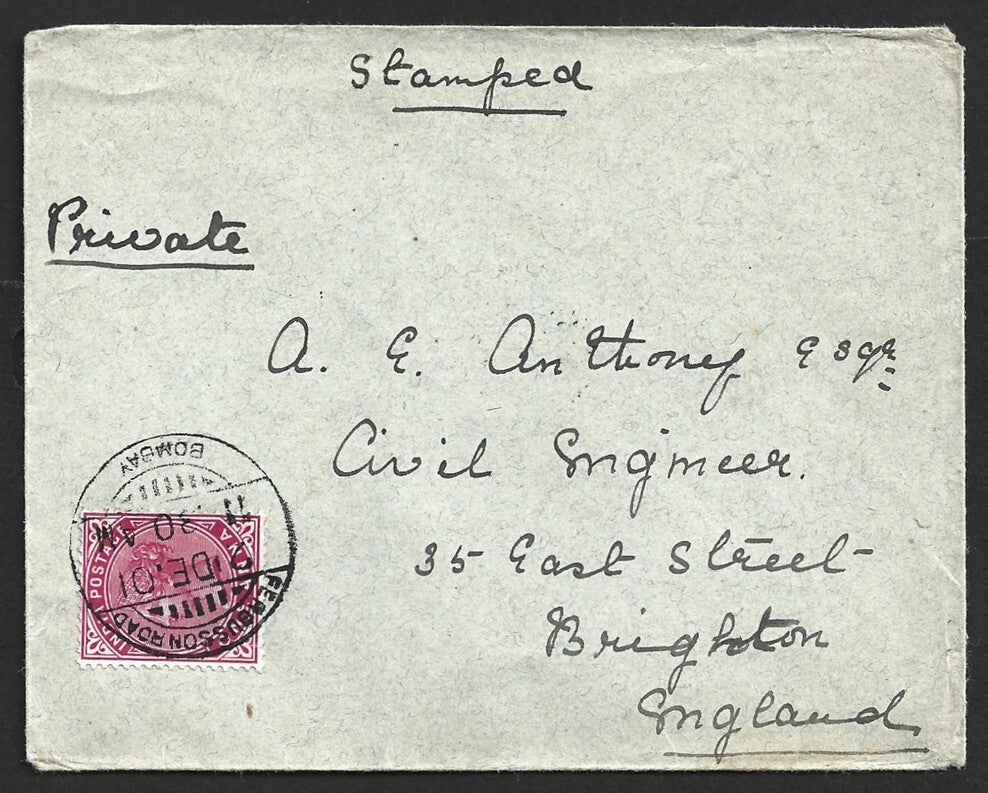 Stamped
Private
A. E. Anthony Esqre
Civil Engineer.
35 East Street
Brighton
England
BOMBAY
11 30 AM
DE. 01
FERGUSSON ROAD
INDIA POSTAGE
ONE ANNA